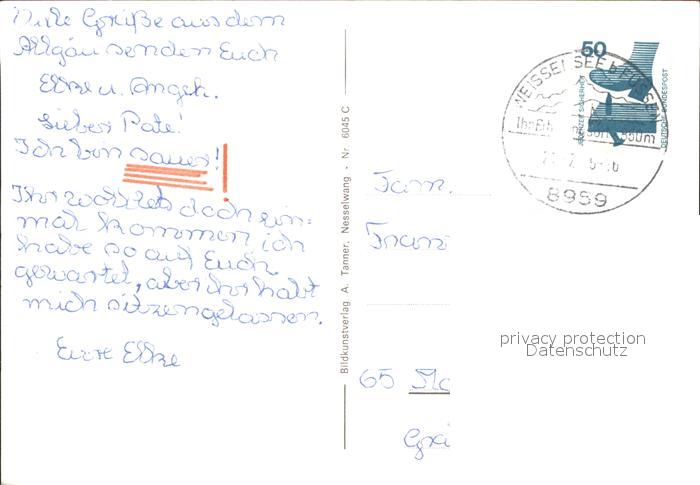 Viele Grüße aus dem
Allgäu senden Euch
Elke u. Angeh.
Lieber Pate!
Ich bin sauer!!
Ihr wolltet doch ein=
mal kommen, ich
habe so auf Euch
gewartet, aber Ihr habt
mich sitzengelassen.
Eure Elke
Bildkunstverlag A. Tanner, Nesselwang · Nr. 6045 C
60
JEDERZEIT SICHERHEIT
DEUTSCHE BUNDESPOST
WEISSENSEE
8959
Fam.
Franz
65 Ma
privacy protection
Datenschutz